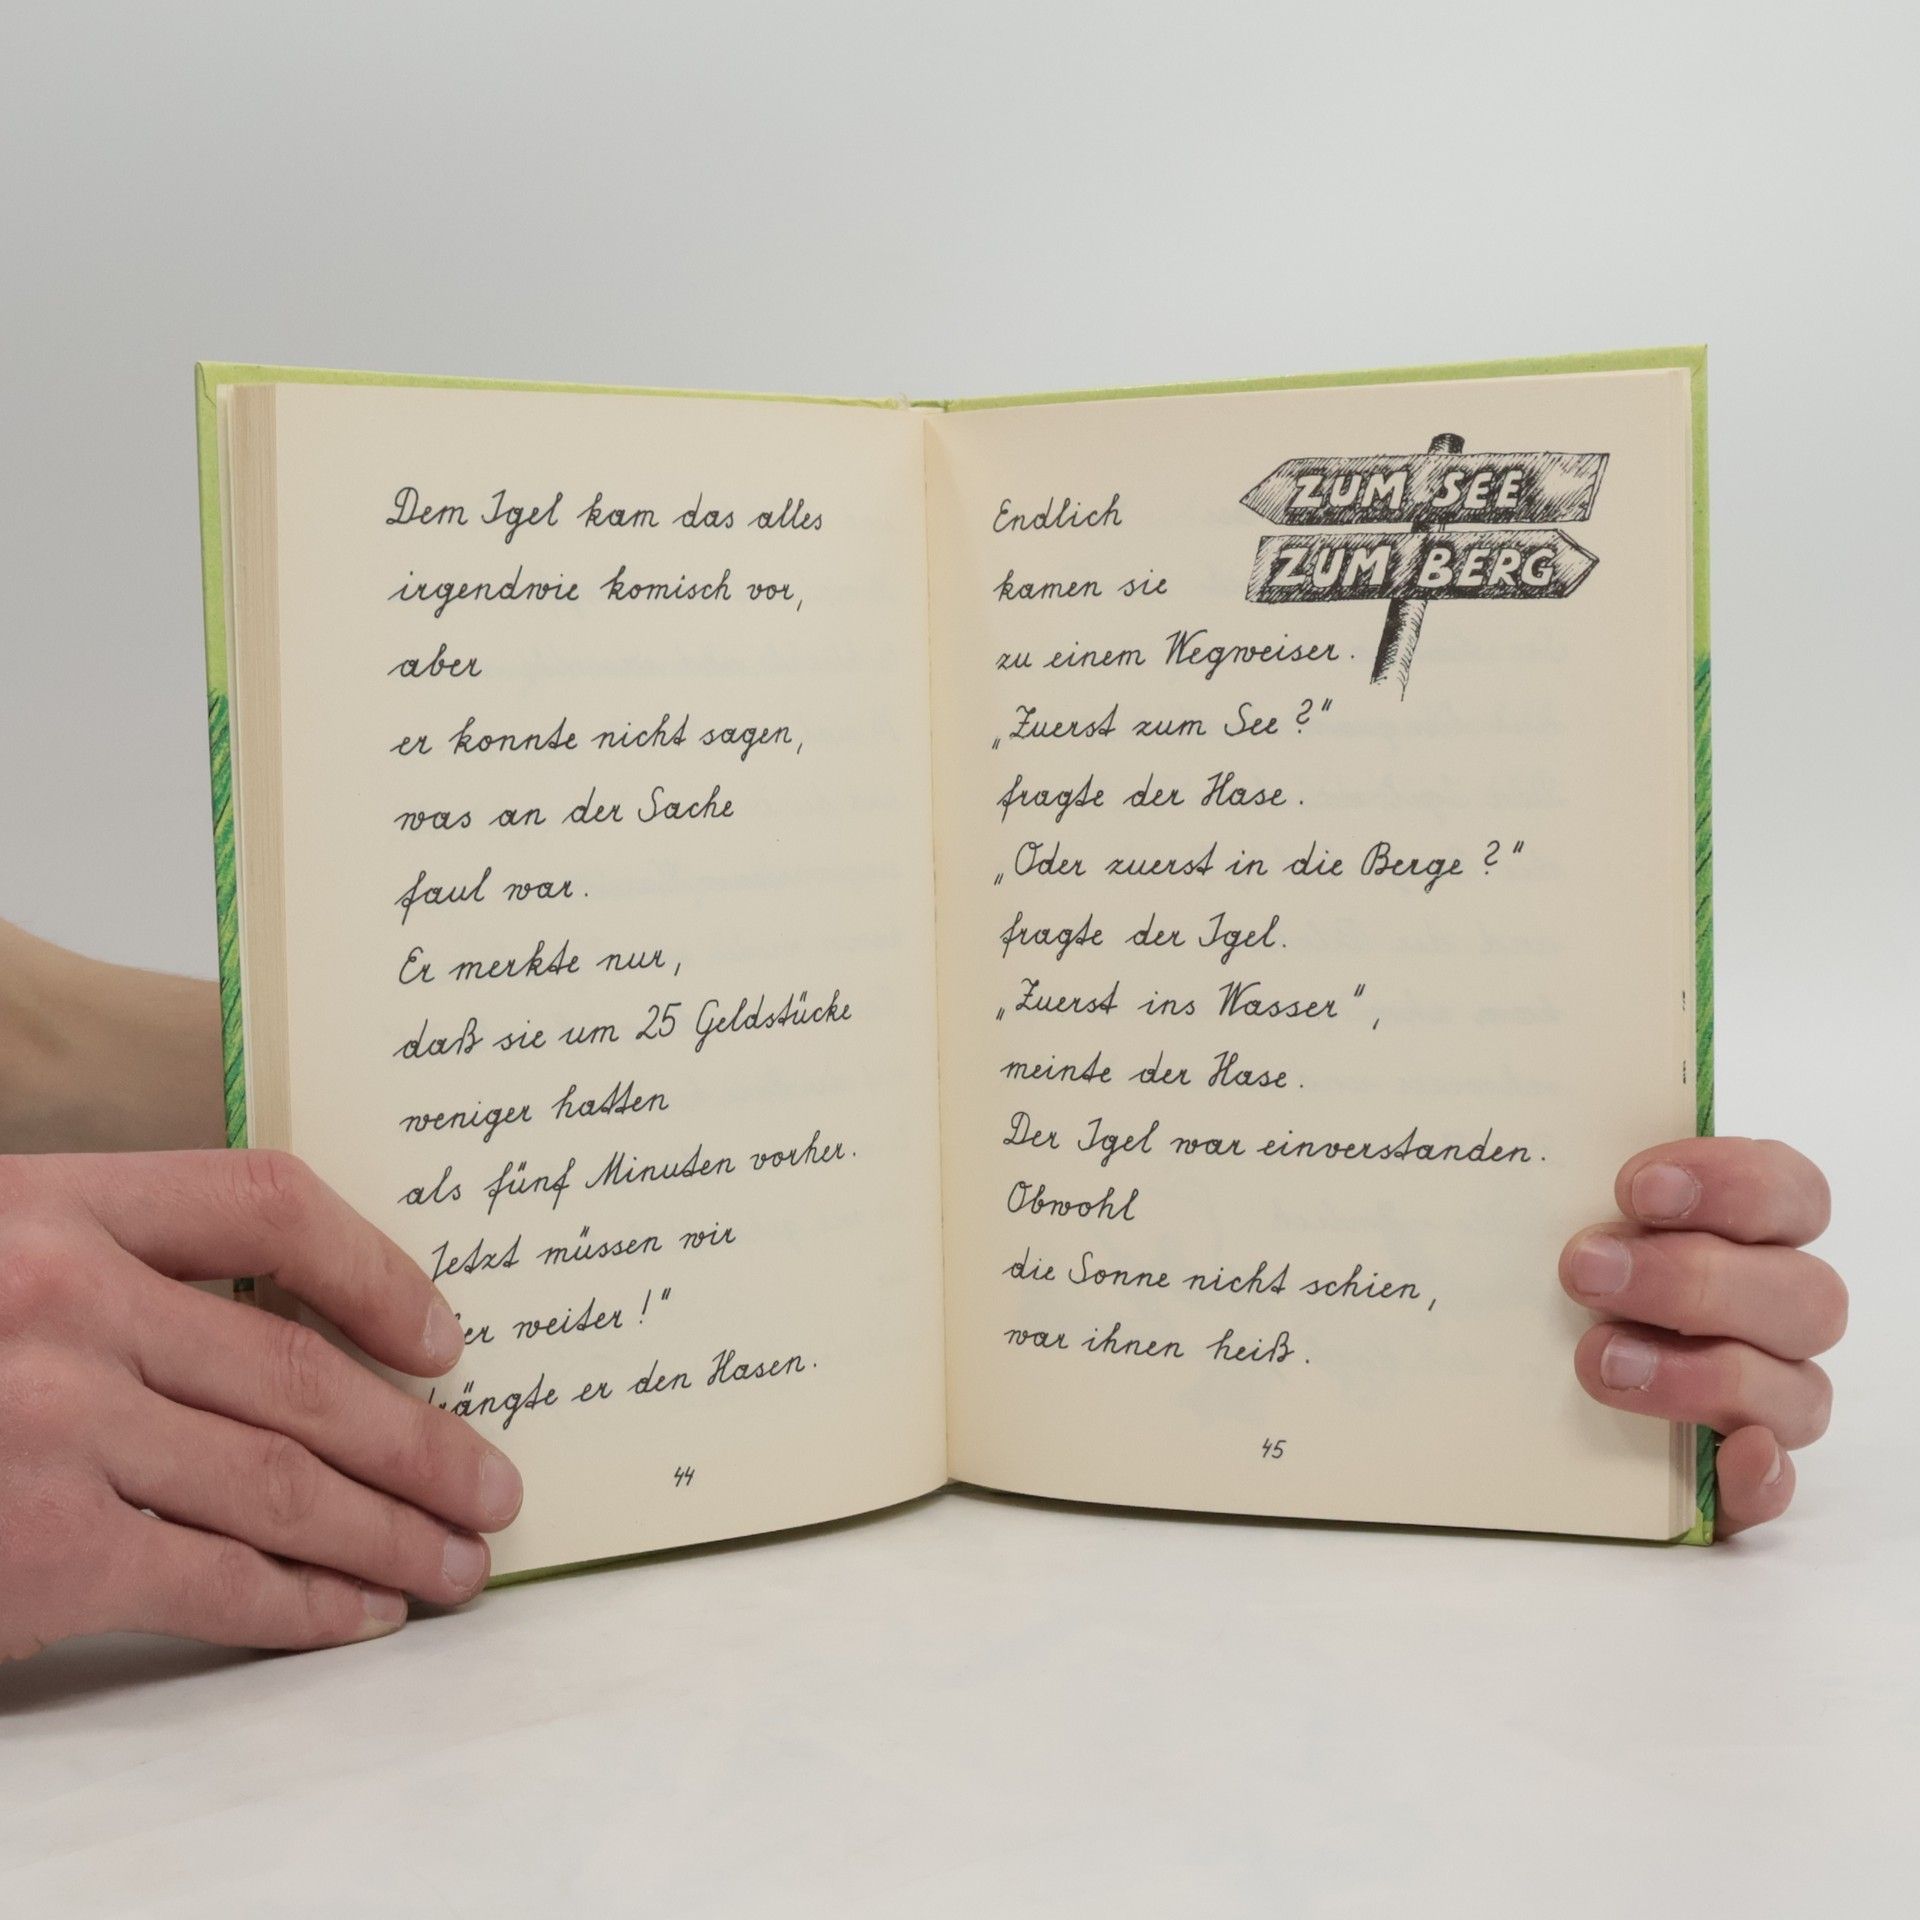 Dem Igel kam das alles
irgendwie komisch vor,
aber
er konnte nicht sagen,
was an der Sache
faul war.
Er merkte nur,
daß sie um 25 Geldstücke
weniger hatten
als fünf Minuten vorher.
Jetzt müssen wir
weiter!"
er den Hasen.
44
ZUM SEE
ZUM BERG
Endlich
kamen sie
zu einem Wegweiser.
„Zuerst zum See?"
fragte der Hase.
„Oder zuerst in die Berge?"
fragte der Igel.
„Zuerst ins Wasser",
meinte der Hase.
Der Igel war einverstanden.
Obwohl
die Sonne nicht schien,
war ihnen heiß.
45